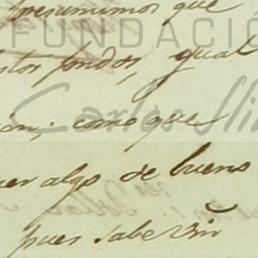 presumimos que
FUNDACIÓN
estos fondos, qual
Carlos Slim
ión; como que
er algo de bueno
pues saber sin